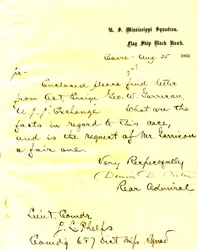 U. S. Mississippi Squadron,
Flag Ship Black Hawk,
Cairo Aug 25 1863
Sir
Enclosed please find letter
from Act. Ensign Geo. W. Garrison
U.S.S. Exchange What are the
facts in regard to this case,
and is the request of Mr. Garrison
a fair one.
Very Respectfully
Rear Admiral
Lieut. Comdr
Phelps
Comd'g 6 & 7 Dist Miss Sqnad